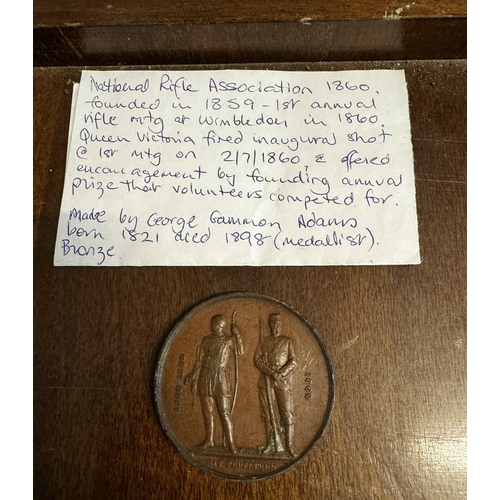 National Rifle Association 1860.
founded in 1859 - 1st annual
rifle mtg at Wimbledon in 1860.
Queen Victoria fired inaugural shot
@ 1st mtg on 2/7/1860, & offered
encouragement by founding annual
prize that volunteers competed for.
Made by George Gammon Adams
born 1821 died 1898 (medallist).
Bronze
1860